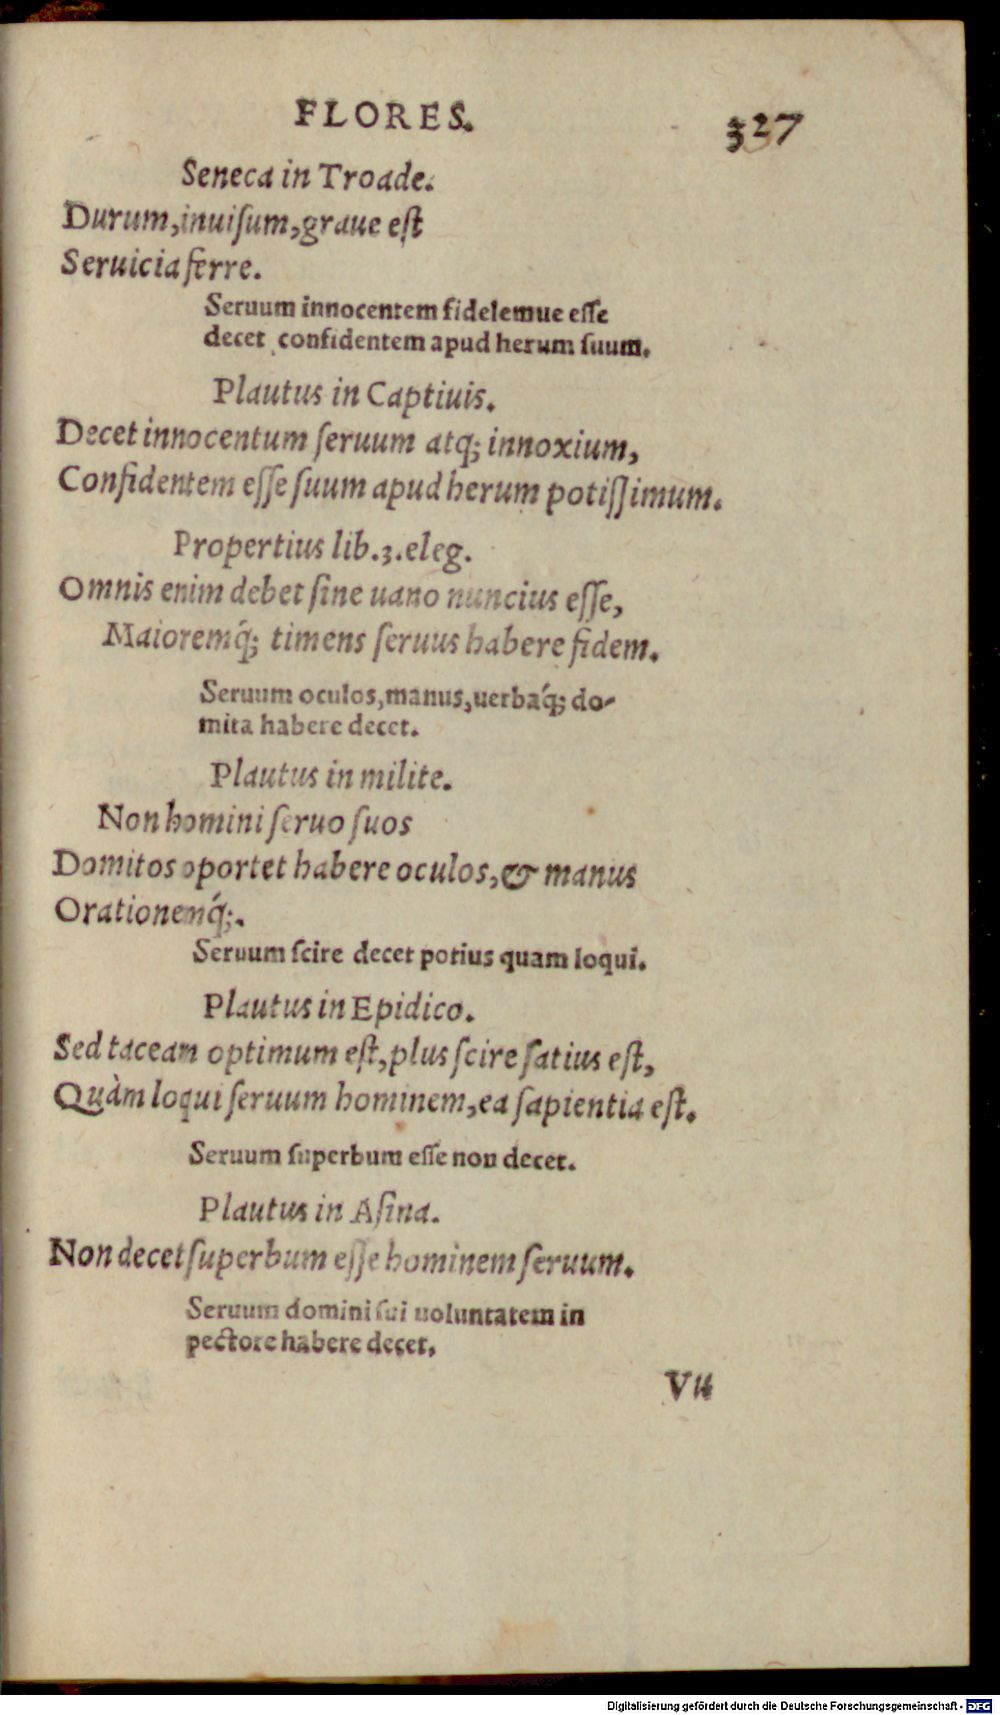 FLORES. 327
Seneca in Troade.
Durum, inuiſum, graue eſt
Seruicia ferre.
Seruum innocentem fidelemue eſſe
decet confidentem apud herum ſuum.
Plautus in Captiuis.
Decet innocentum ſeruum atq; innoxium,
Confidentem eſſe ſuum apud herum potiſſimum.
Propertius lib.3.eleg.
Omnis enim debet ſine uano nuncius eſſe,
Maioremq́; timens ſeruus habere fidem.
Seruum oculos, manus, uerbaq́; do-
mita habere decet.
Plautus in milite.
Non homini ſeruo ſuos
Domitos oportet habere oculos, & manus
Orationemq́;.
Seruum ſcire decet potius quam loqui.
Plautus in Epidico.
Sed taceam optimum eſt, plus ſcire ſatius eſt,
Quàm loqui ſeruum hominem, ea ſapientia eſt.
Seruum ſuperbum eſſe non decet.
Plautus in Aſina.
Non decet ſuperbum eſſe hominem ſeruum.
Seruum domini ſui uoluntatem in
pectore habere decet.
Vu
Digitalisierung gefördert durch die Deutsche Forschungsgemeinschaft - DFG